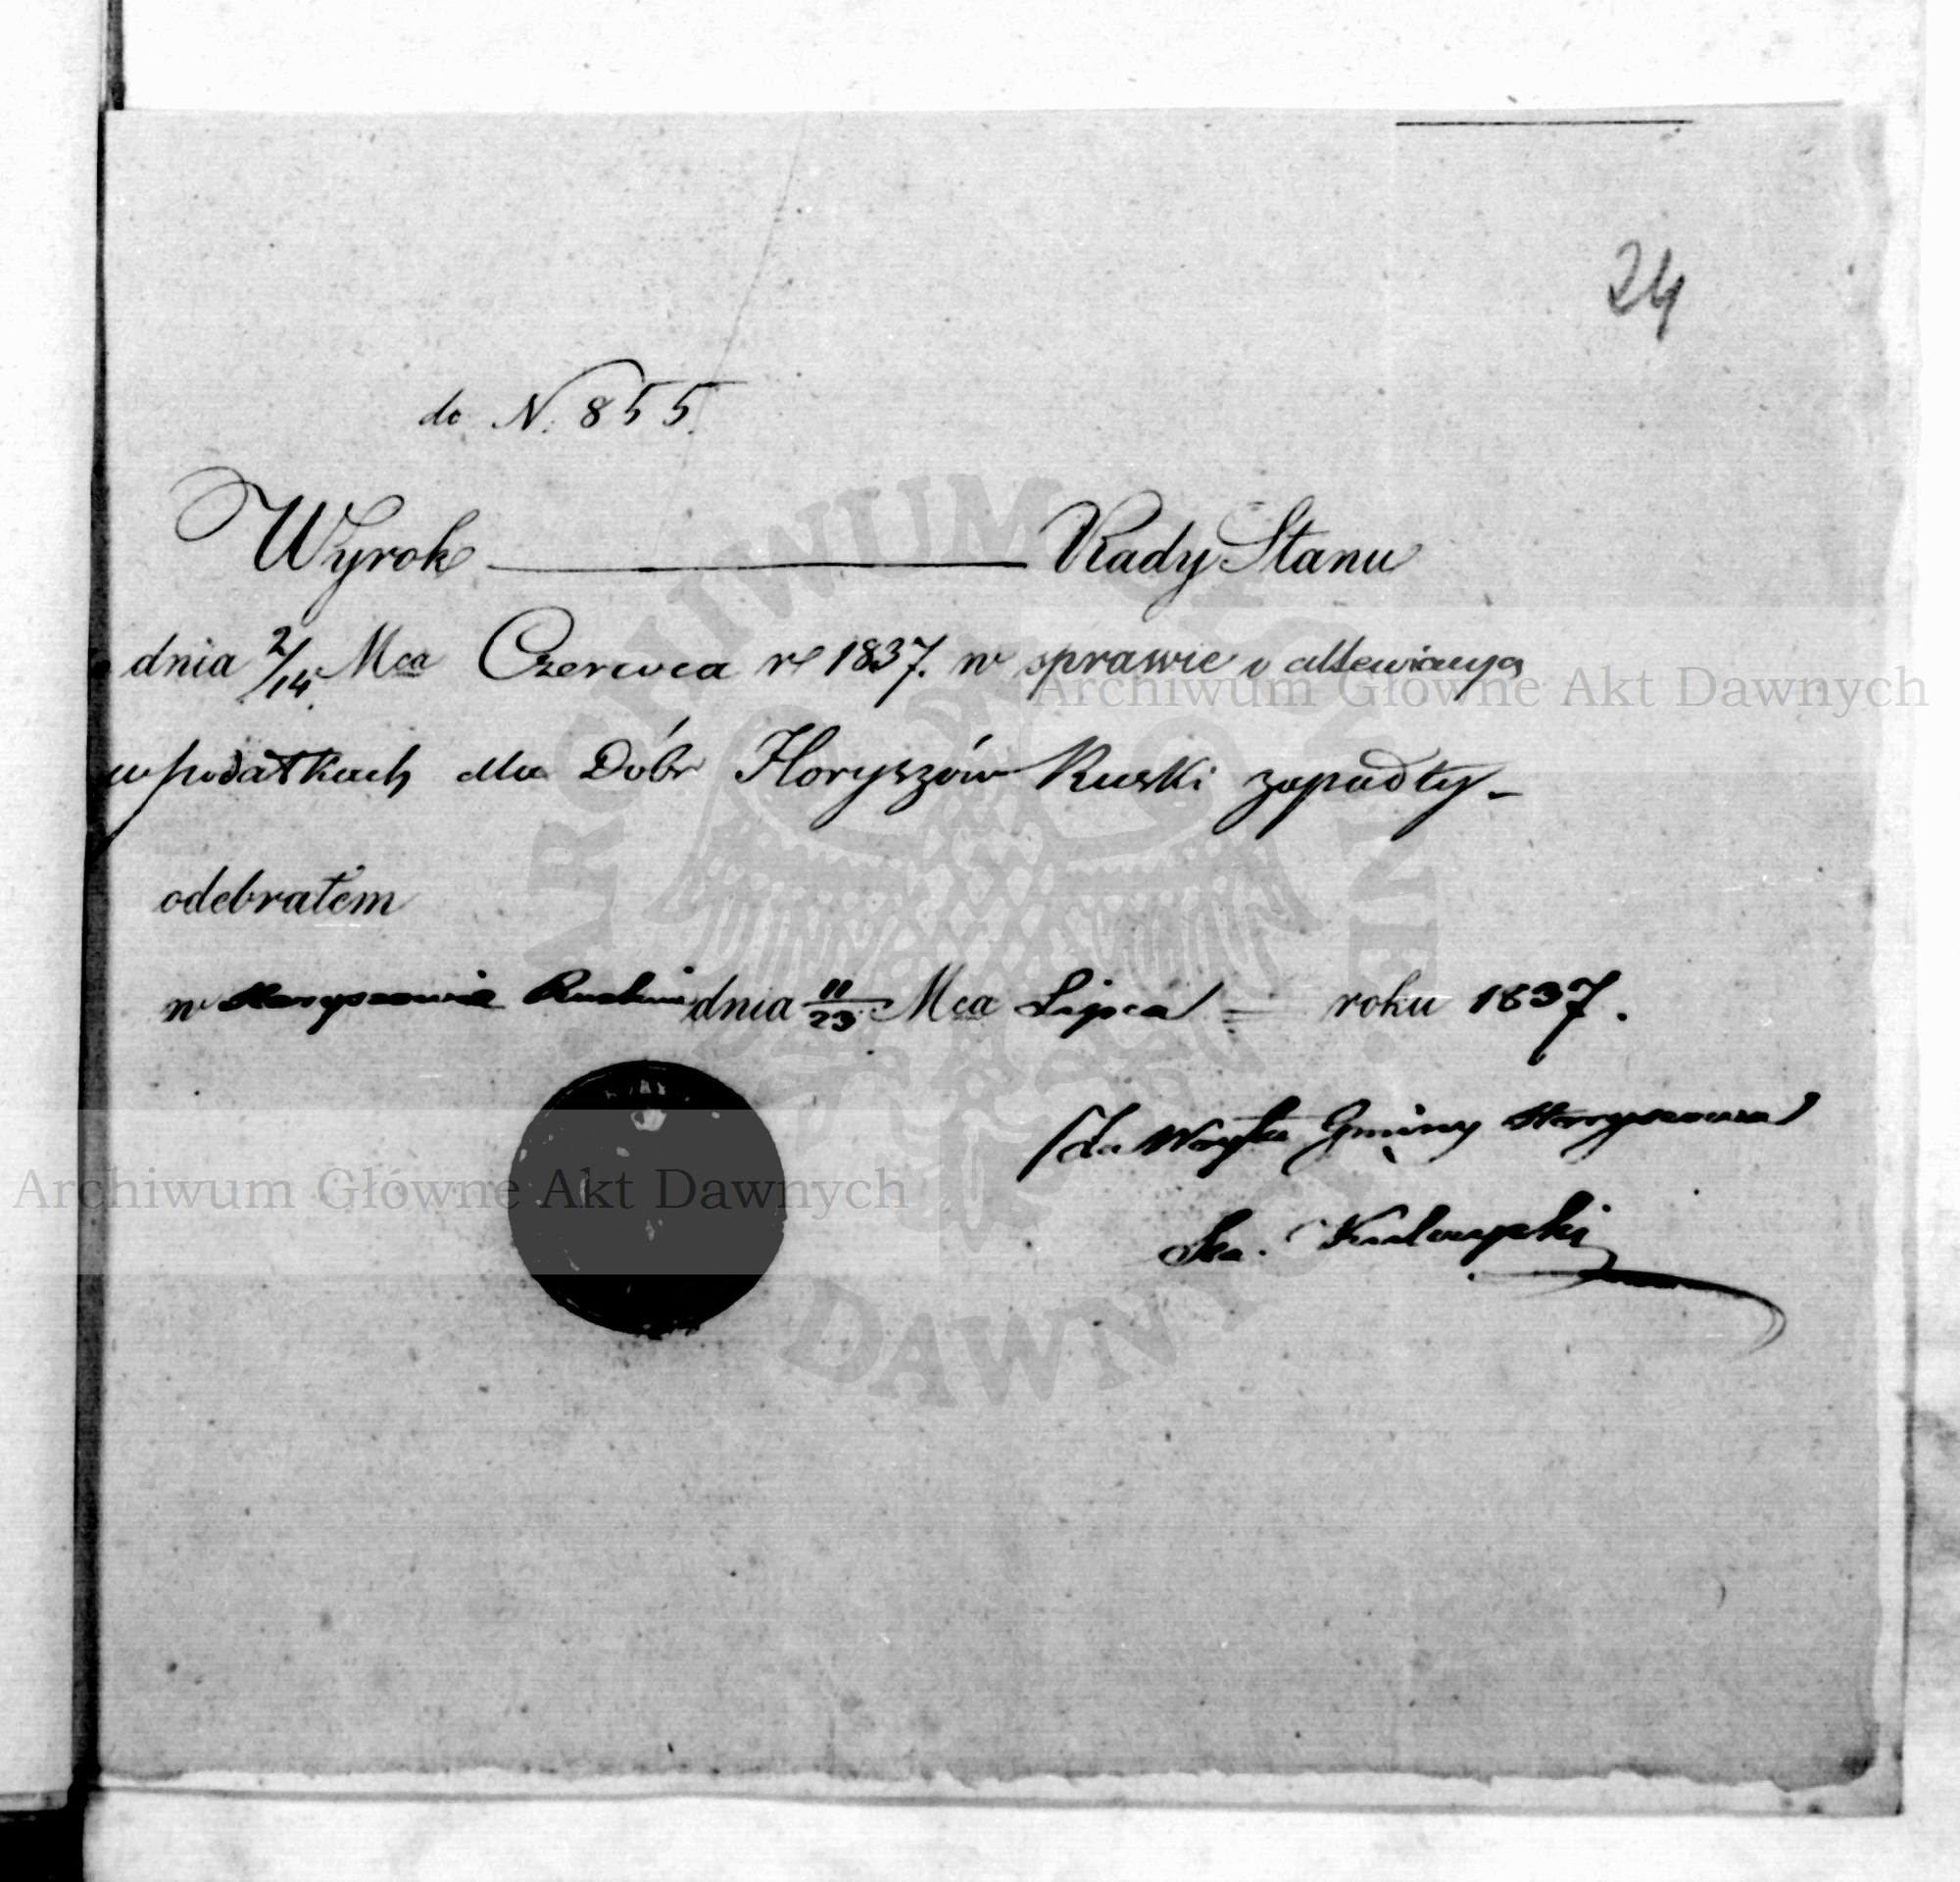 24
do N. 855.
Wyrok Rady Stanu
dnia 2/14 Mca Czerwca rl 1837. w sprawie o
w podatkach dla Dóbr Horyszów Ruski zapadły -
odebrałem
w Horyszowie Ruskim dnia 11/23 Mca Lipca = roku 1837.
Za Wójta Gminy Horyszowa
Archiwum Główne Akt Dawnych
Archiwum Główne Akt Dawnych
ARCHIWUM GŁÓWNE AKT DAWNYCH